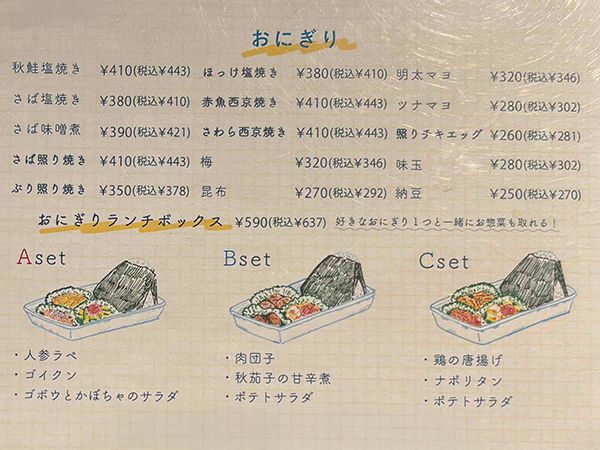 おにぎり
秋鮭塩焼き ¥410(税込¥443) ほっけ塩焼き ¥380(税込¥410) 明太マヨ ¥320(税込¥346)
さば塩焼き ¥380(税込¥410) 赤魚西京焼き ¥410(税込¥443) ツナマヨ ¥280(税込¥302)
さば味噌煮 ¥390(税込¥421) さわら西京焼き ¥410(税込¥443) 照りチキエッグ ¥260(税込¥281)
さば照り焼き ¥410(税込¥443) 梅 ¥320(税込¥346) 味玉 ¥280(税込¥302)
ぶり照り焼き ¥350(税込¥378) 昆布 ¥270(税込¥292) 納豆 ¥250(税込¥270)
おにぎりランチボックス ¥590(税込¥637) 好きなおにぎり1つと一緒にお惣菜も取れる!
Aset
・人参ラペ
・ゴイクン
・ゴボウとかぼちゃのサラダ
Bset
・肉団子
・秋茄子の甘辛煮
・ポテトサラダ
Cset
・鶏の唐揚げ
・ナポリタン
・ポテトサラダ